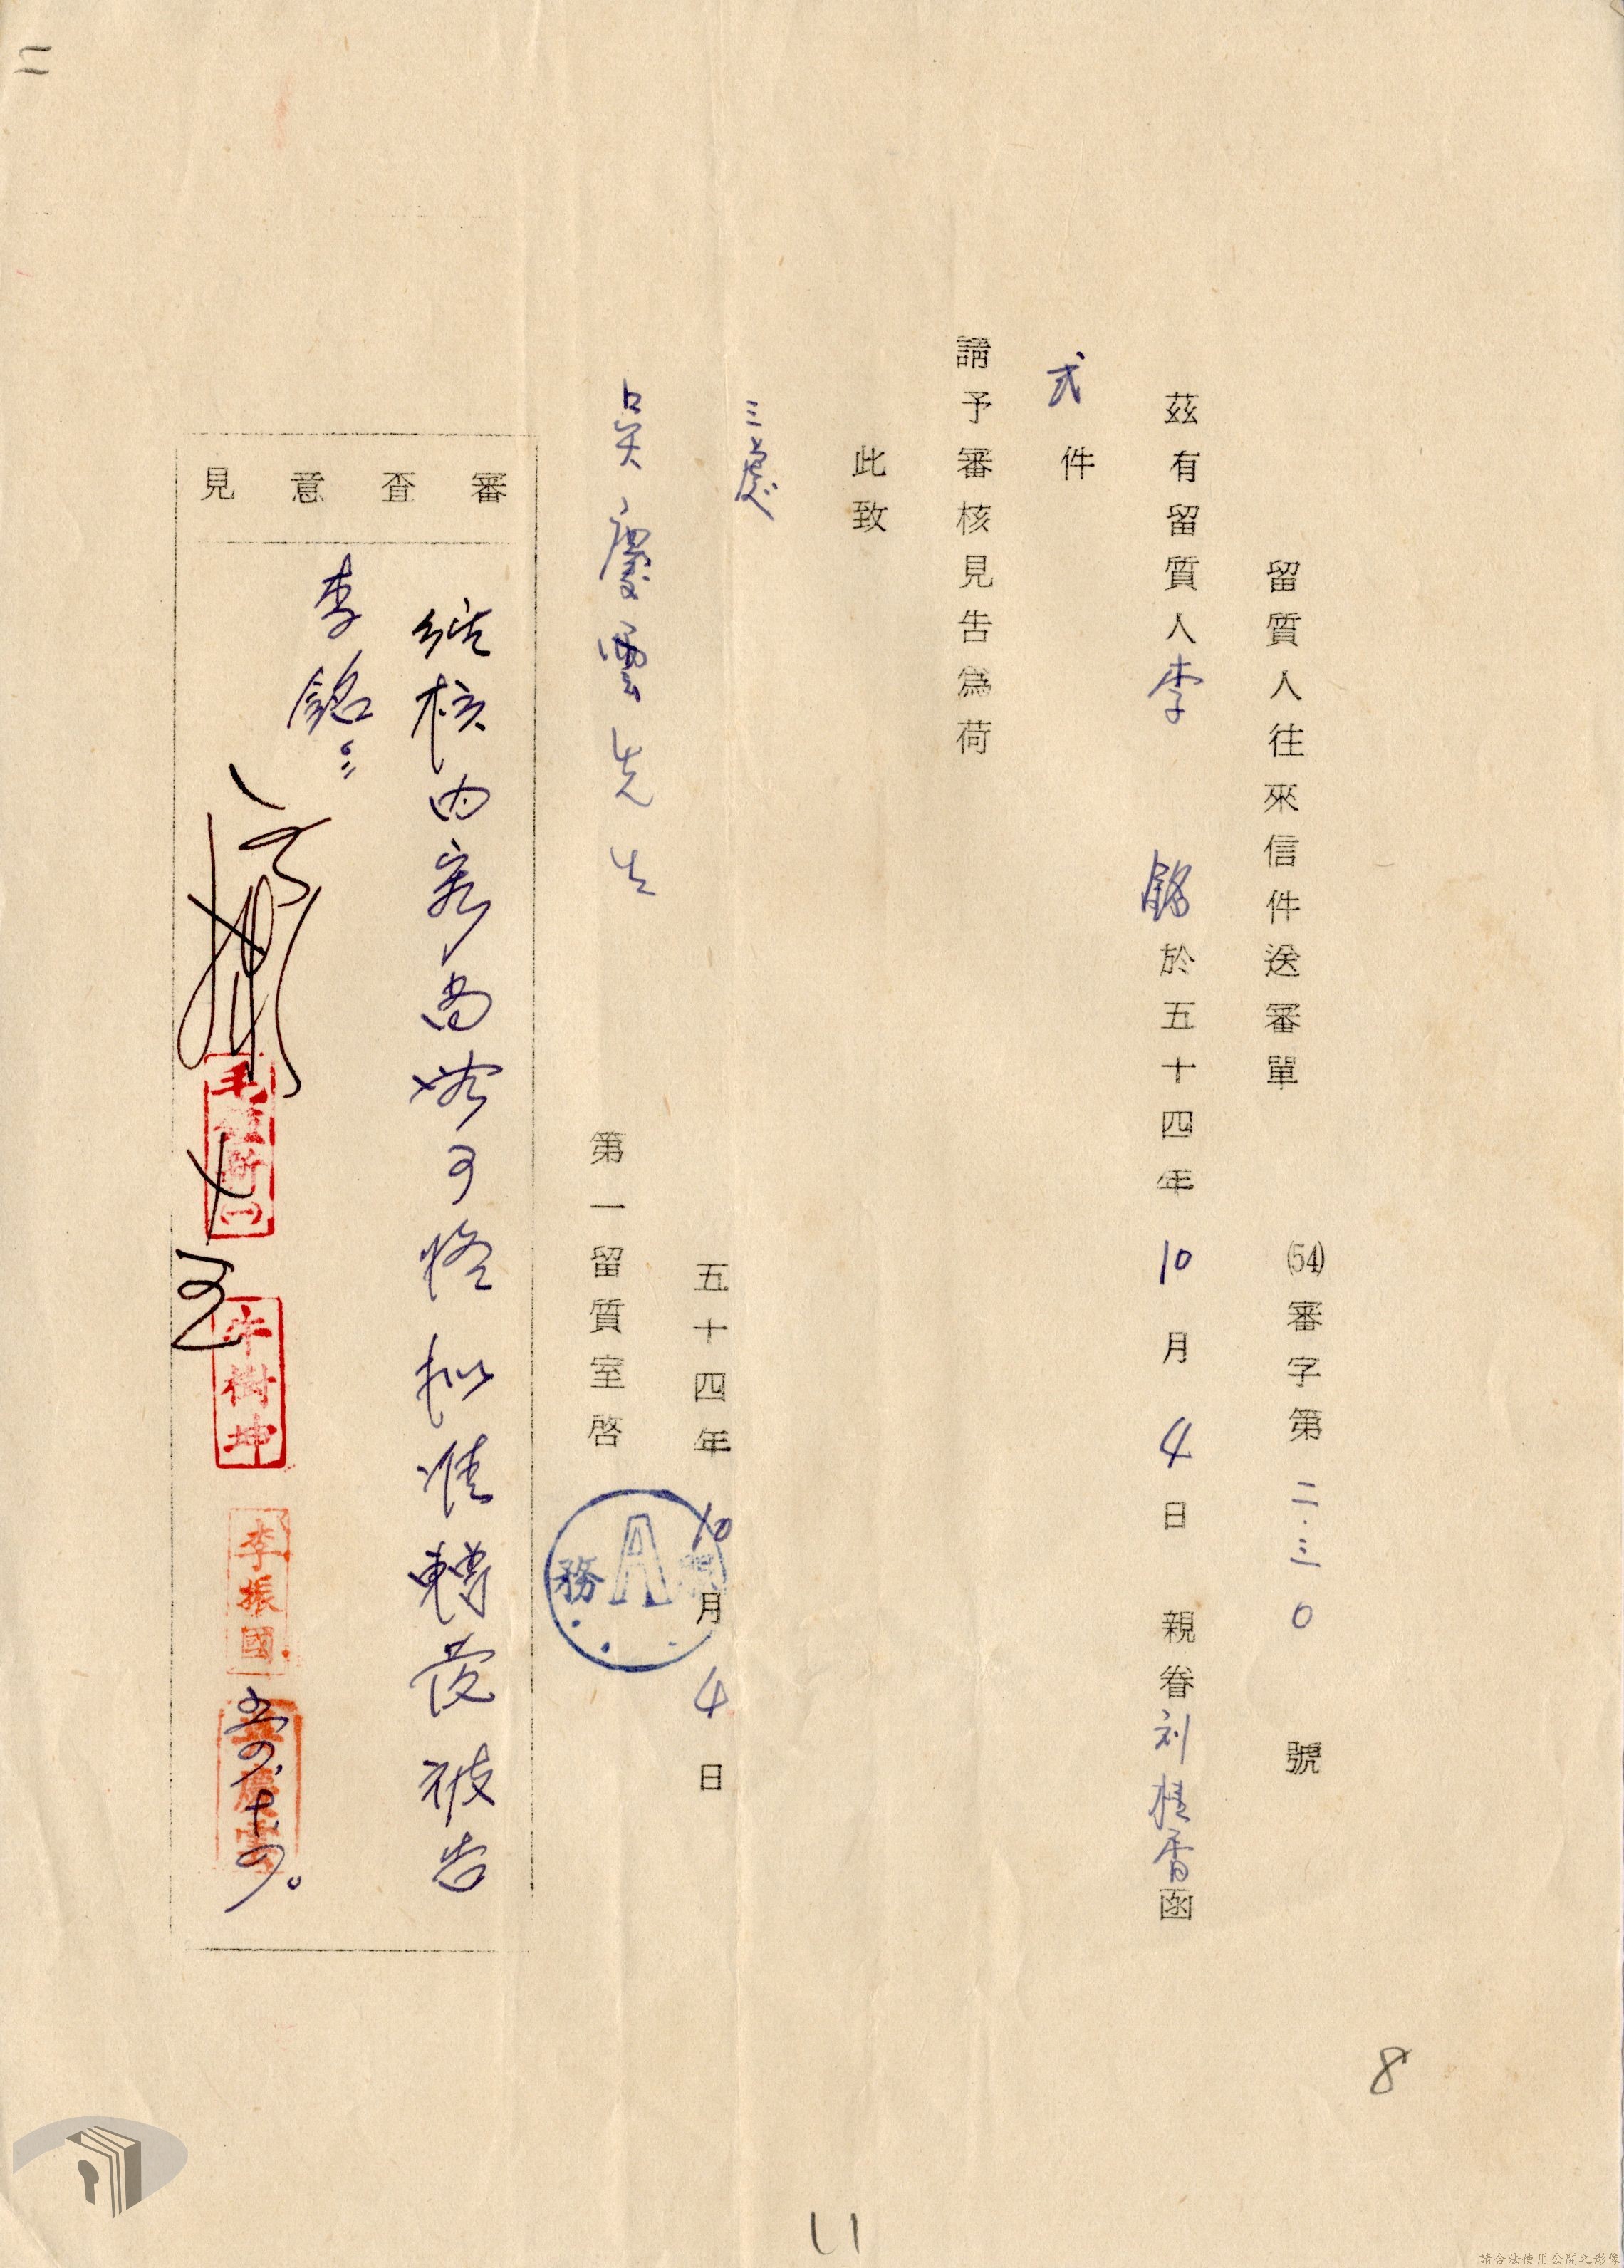 留質人往來信件送審單
(54)審字第二.三0號
茲有留質人李銘於五十四年10月4日親眷刘桂香函
弍件
請予審核見告為荷
此致
三處
吳慶雲先生
五十四年10月4日
第一留質室啓
務A
審查意見
經核內容尚
可
擬准轉發被告
李銘
牛樹坤
李振國
吳慶雲
8
11
二
請合法使用公開之影像